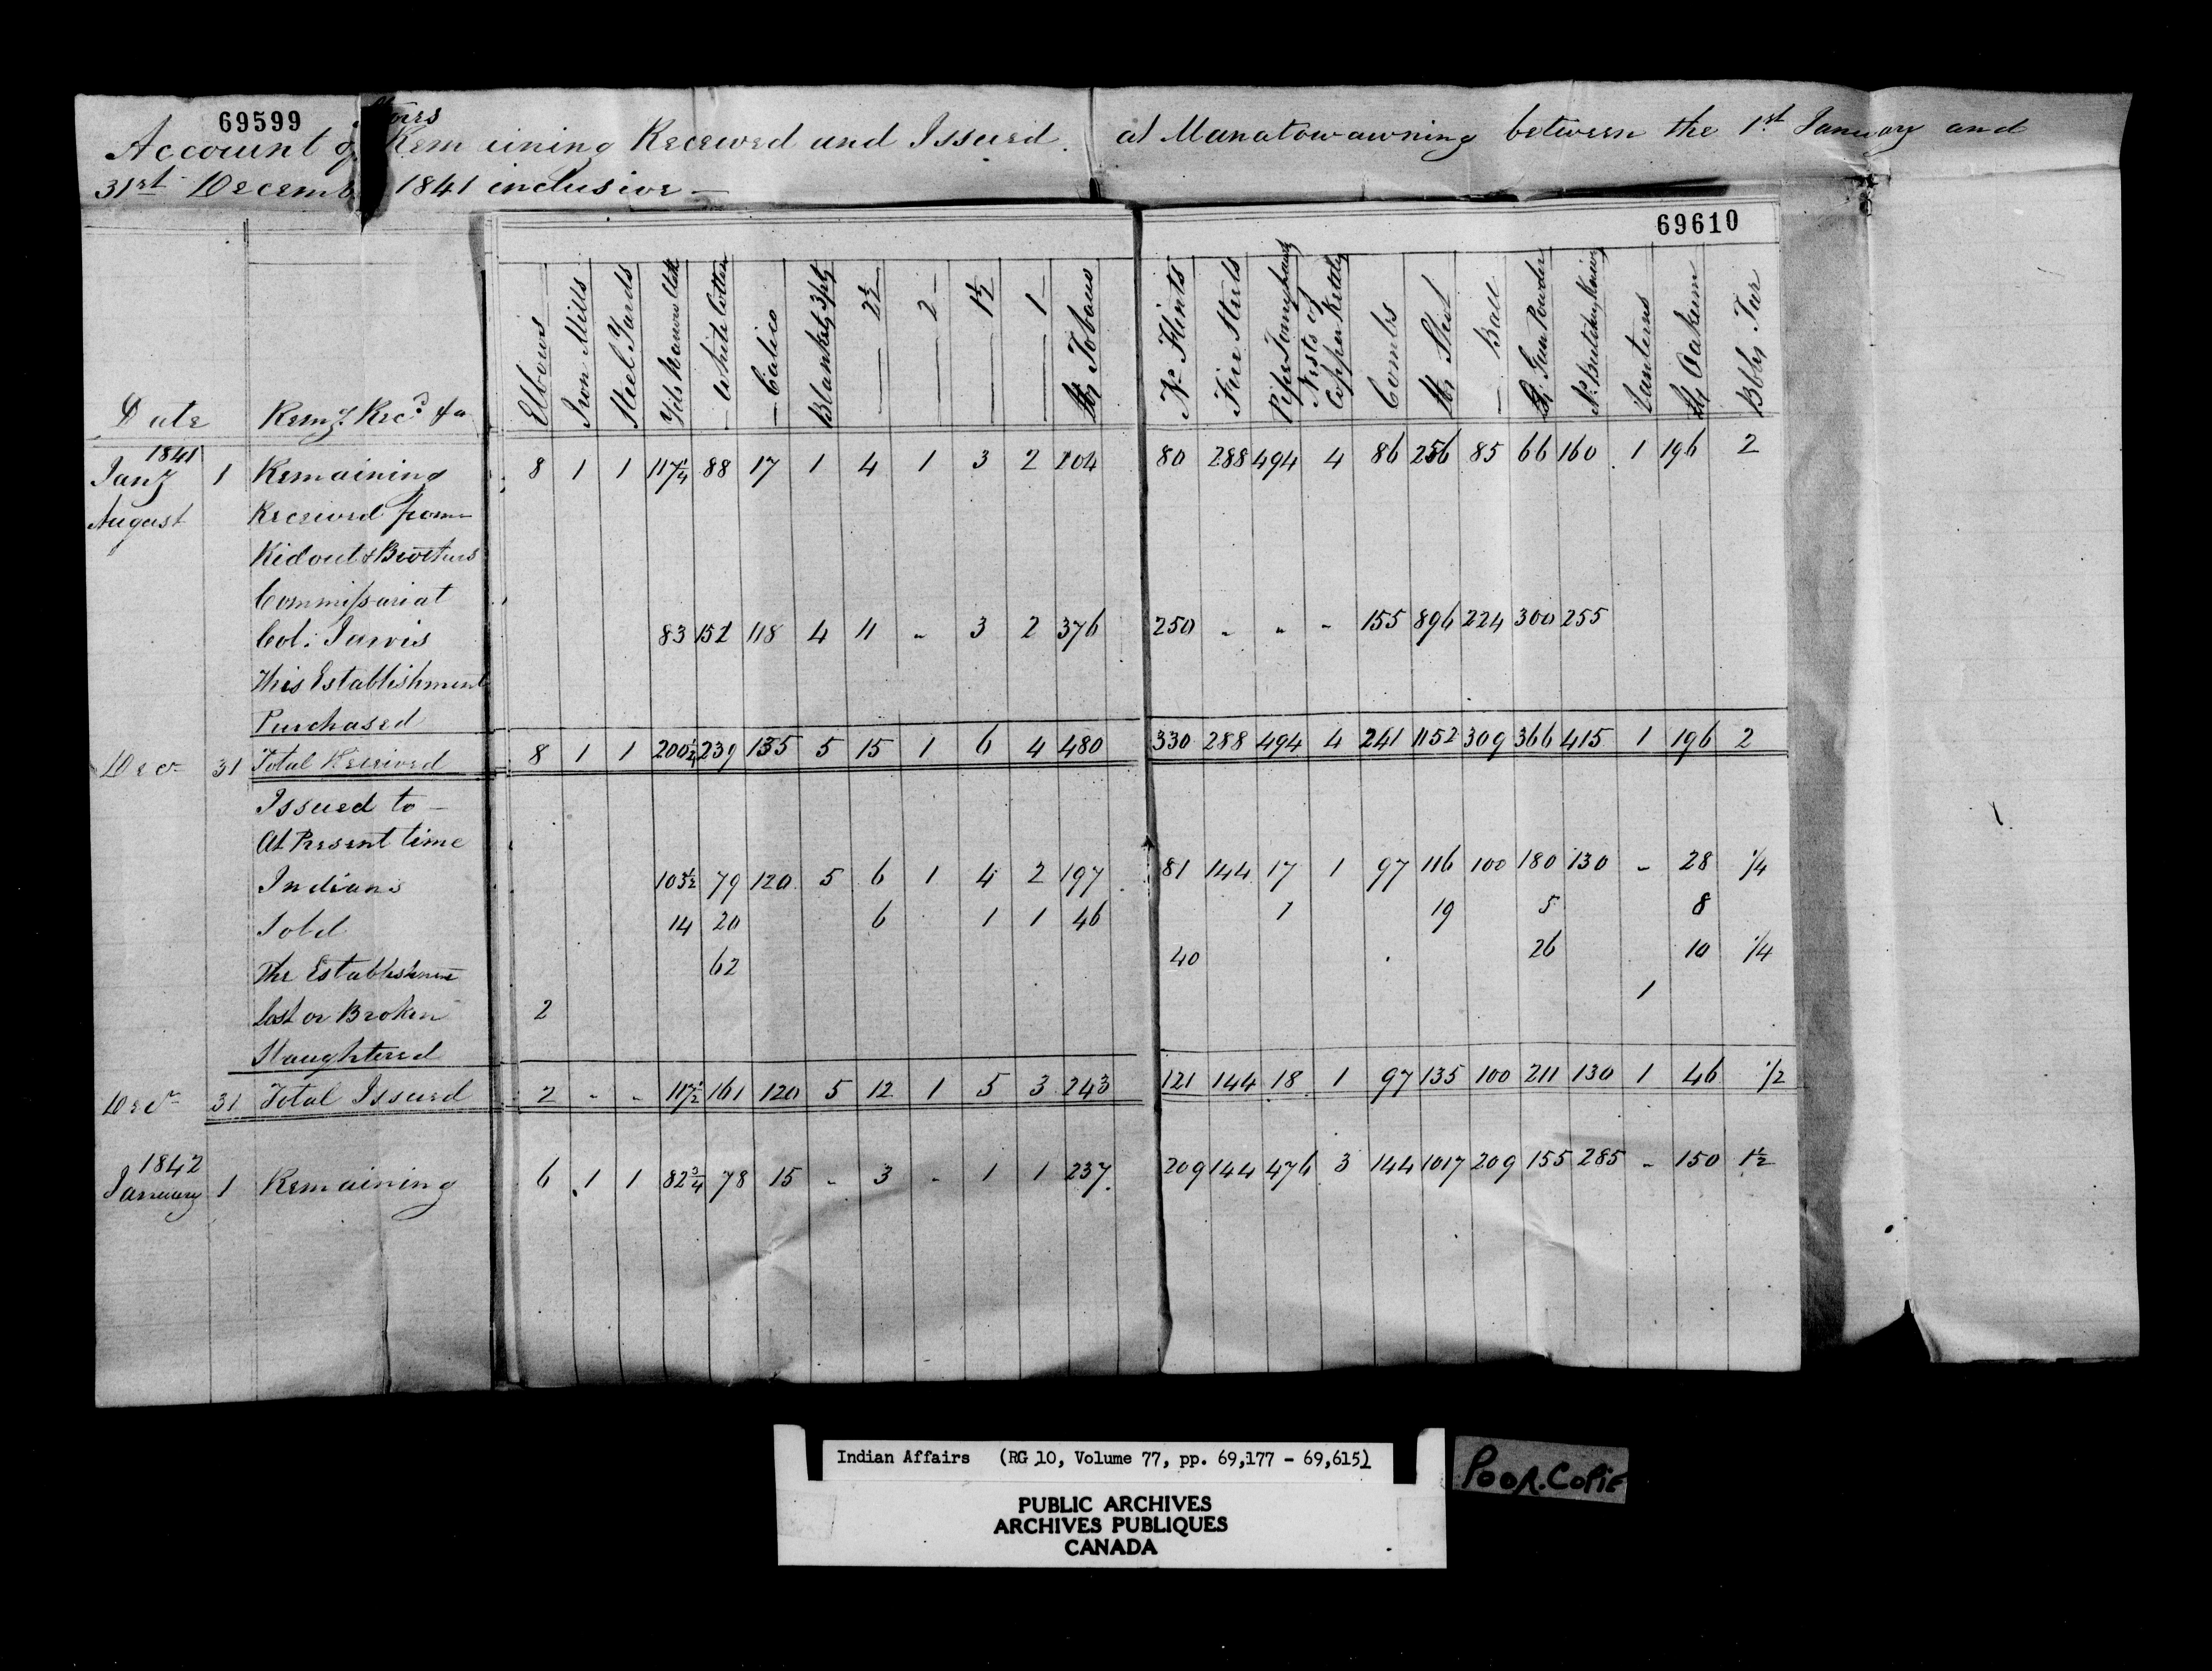 69599
Account of Stores Remaining Received and Issued at Manatowawning between the 1st January and
31st December 1841 inclusive —
69610
Date Remg. Recd &a Elbows Iron Mills Steel Yards Yds Narrow Cloth — White Cotton — Calico Blankets 3 pts — 2½ — 2 — 1½ — 1 lbs Tobacco No Flints Fire Steels Pipe Tomyhawks Nests of Copper Kettles Combs lbs Shot — Ball lbs Gun Powder No Lanterns lbs Oakum Bbls Tar
1841
Jany 1 Remaining 8 1 1 117¼ 88 17 1 4 1 3 2 104 80 288 494 4 86 256 85 66 160 1 196 2
August Received from
Ridout & Brothers
Commissariat
Col: Jarvis 83 152 118 4 11 " 3 2 376 250 " " " 155 896 224 300 255
This Establishment
Purchased
Decr 31 Total Received 8 1 1 200¼ 239 135 5 15 1 6 4 480 330 288 494 4 241 1152 309 366 415 1 196 2
Issued to —
At Present time
Indians 103½ 79 120 5 6 1 4 2 197 81 144 17 1 97 116 100 180 130 " 28 ¼
Sold 14 20 6 1 1 46 1 19 5 8
The Establishment 62 40 26 10 ¼
Lost or Broken 2 1
Slaughtered
Decr 31 Total Issued 2 " " 117½ 161 120 5 12 1 5 3 243 121 144 18 1 97 135 100 211 130 1 46 ½
1842
January 1 Remaining 6 1 1 82¾ 78 15 " 3 " 1 1 237 209 144 476 3 144 1017 209 155 285 " 150 1½
Indian Affairs (RG 10, Volume 77, pp. 69,177 - 69,615)
POOR.COPIE
PUBLIC ARCHIVES
ARCHIVES PUBLIQUES
CANADA